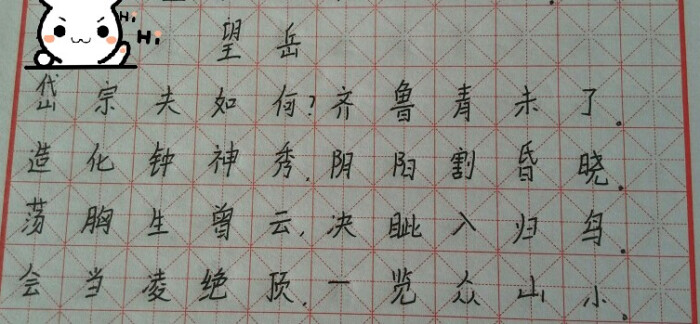 Hi,
Hi
望岳
岱宗夫如何?齐鲁青未了.
造化钟神秀,阴阳割昏晓.
荡胸生曾云,决眦入归鸟.
会当凌绝顶,一览众山小.